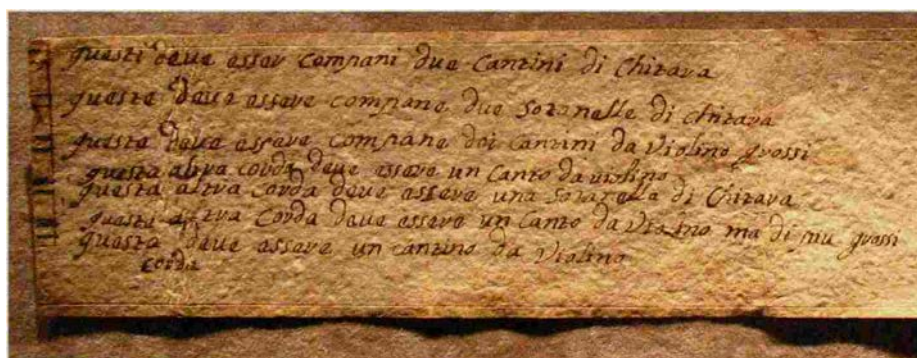 questi deve esser compani due Cantini di Chitara
queste deve essere compane due sotanelle di chitara
questa deve essere compane doi Cantini da Violino grossi
questa altra corda deve essere un Canto da violino
questa altra Corda deve essere una sotanella di Chitara
questa altra Corda deve essere un Canto da Violino ma di piu grossi
questa deve essere un Cantino da Violino
Corda